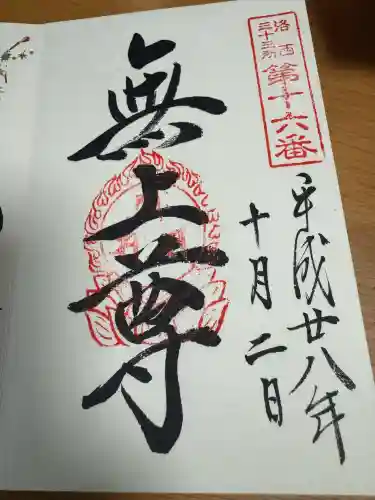 洛西
三十三所
第十六番
平成廿八年
十月二日
無上尊